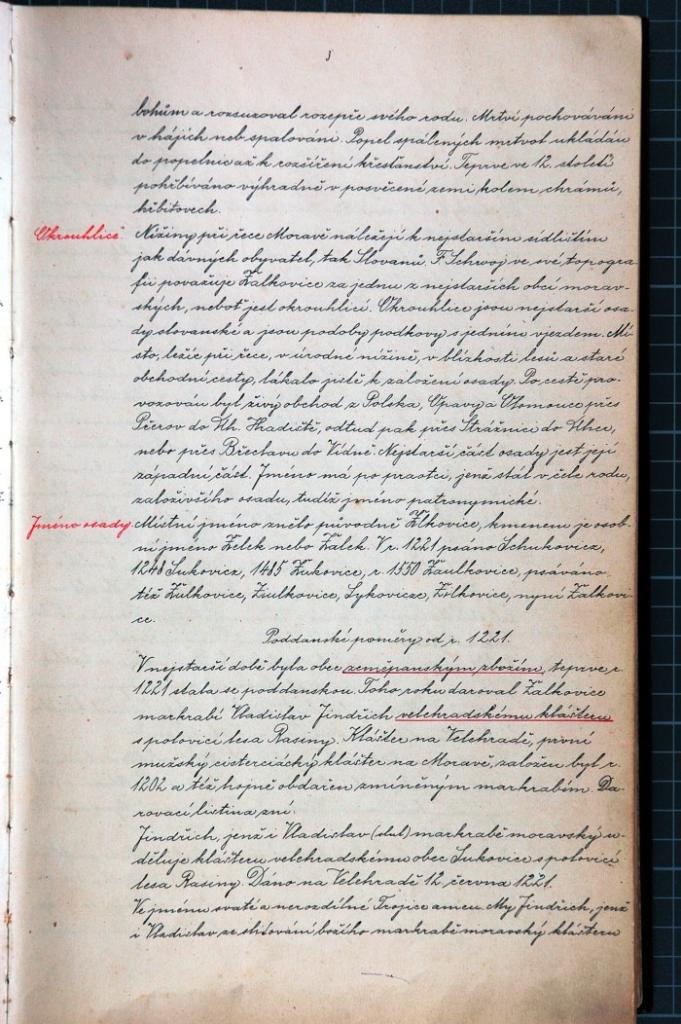 bohům a rozsuzoval rozepře svého rodu. Mrtví pochováváni
v hájích neb spalováni. Popel spálených mrtvol ukládán
do popelnic až k rozšíření křesťanství. Teprve ve 12. století
pohřbíváno výhradně v posvěcené zemi kolem chrámů,
hřbitovech.
Okrouhlice.
Nížiny při řece Moravě náležejí k nejstarším sídlištím
jak dávných obyvatel, tak Slovanů. F. Schwoj ve své topogra-
fii považuje Žalkovice za jednu z nejstarších obcí morav-
ských, neboť jest okrouhlicí. Okrouhlice jsou nejstarší osa-
dy slovanské a jsou podoby podkovy s jedním vjezdem. Mí-
sto, ležíc při řece, v úrodné nížině, v blízkosti lesů a staré
obchodní cesty, lákalo jistě k založení osady. Po cestě pro-
vozován byl živý obchod z Polska, Opavy a Olomouce přes
Přerov do Uh. Hradiště, odtud pak přes Strážnici do Uher,
nebo přes Břeclavu do Vídně. Nejstarší část osady jest její
západní část. Jméno má po praotci, jenž stál v čele rodu,
založivšího osadu, tudíž jméno patronymické.
Jméno osady.
Místní jméno znělo původně Žlkovice, kmenem je osob-
ní jméno Želek nebo Žálek. V r. 1221 psáno Schukovicz,
1248 Sukovicz, 1485 Žukovice, r. 1550 Žaulkovice, psáváno
též Žulkovice, Žiulkovice, Sykovicze, Žolkovice, nyní Žalkovi-
ce.
Poddanské poměry od r. 1221.
V nejstarší době byla obec zeměpanským zbožím, teprve r.
1221 stala se poddanskou. Toho roku daroval Žalkovice
markrabí Vladislav Jindřich velehradskému klášteru
s polovicí lesa Rasiny. Klášter na Velehradě, první
mužský cisterciácký klášter na Moravě, založen byl r.
1202 a též hojně obdařen zmíněným markrabím. Da-
rovací listina zní:
Jindřich, jenž i Vladislav (slul) markrabě moravský u-
děluje klášteru velehradskému obec Sukovice s polovicí
lesa Rasiny. Dáno na Velehradě 12. června 1221.
Ve jménu svaté a nerozdílné Trojice amen. My Jindřich, jenž
i Vladislav ze slitování božího markrabě moravský klášteru